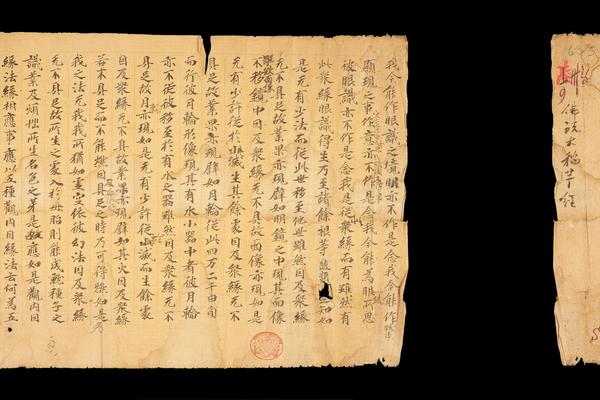 佛說大稻芉經
我今能作眼識之境明亦不作是念我今能作
顯現之事作意亦不作是念我今能為眼所思
彼眼識亦不作是念我是從衆緣而有雖然有
此衆緣眼識得生乃至諸餘根等知如
是无有少法而從此世移至他世雖然因及衆緣
无不具足故業果亦現譬如明鏡之中現其面像
不移鏡中因及衆緣无不具故面像亦現如是
无有少許從於此滅生其餘處因及衆緣无不
具足故業果亦現譬如月輪從此四万二千由旬
而行彼月輪形像現其有水小器中者彼月輪
亦不從彼移至於有水之器雖然因及衆緣无不
具足故月亦現如是无有少許從此滅而生餘處
因及衆緣无不具故業果亦現譬如其火因及衆緣
若不具足而不能燃因具足之時乃可得燃如是无
我之法无我我所猶如虛空依彼幻法因及衆緣
无不具足故所生之處入於母胎則能成就種子之
識業及煩惱所生名色之芽是故應如是觀內因
緣法緣相應事應以五種觀內因緣法云何為五